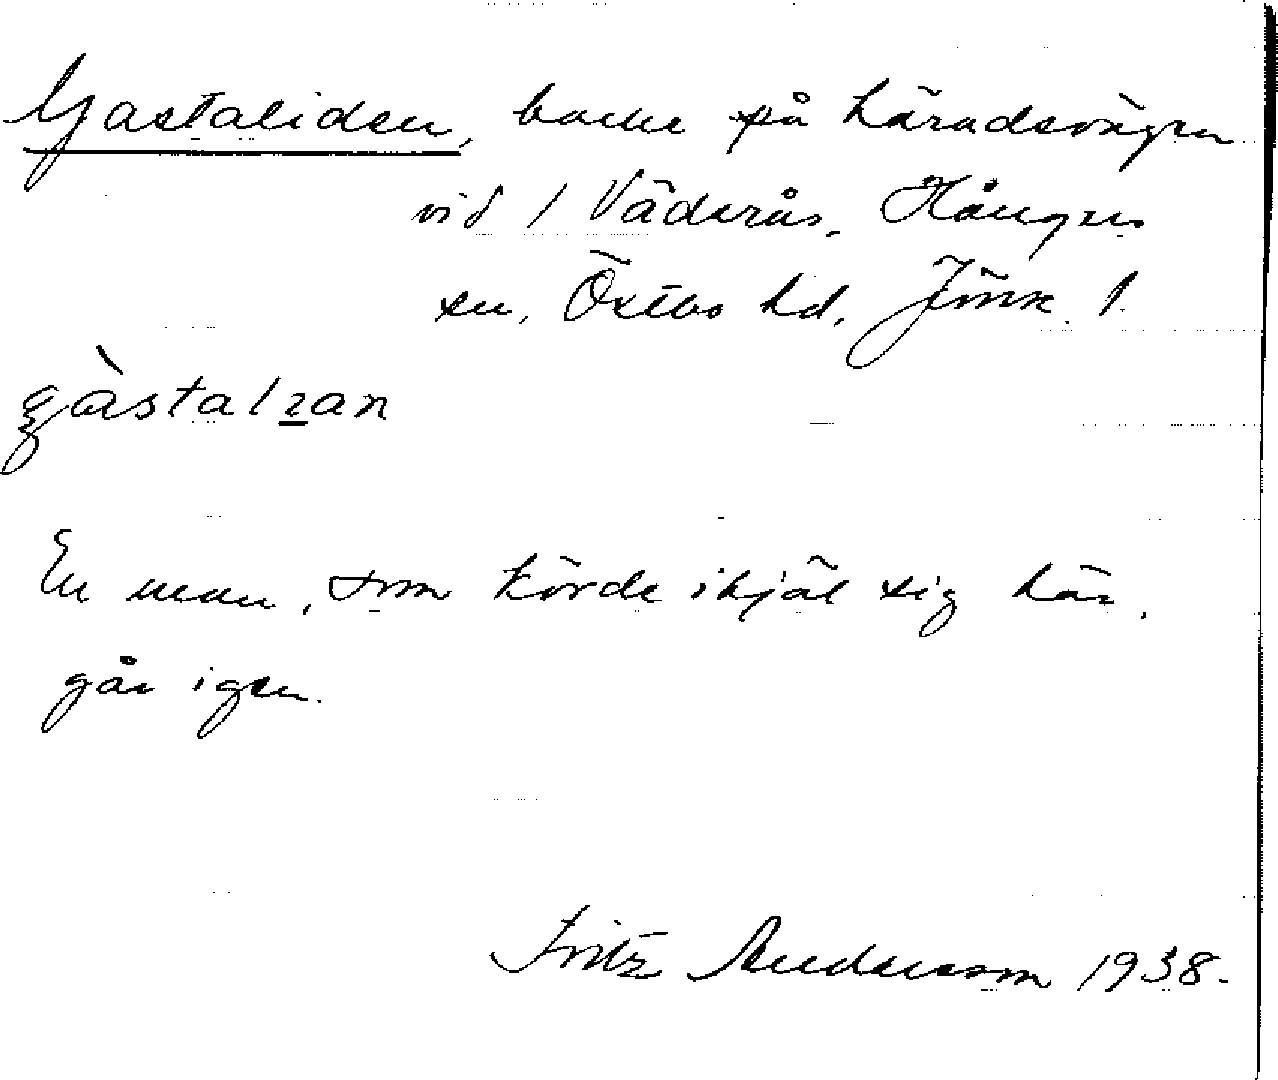 Gastaliden, backe på häradsvägen
vid 1 Väderås, Hångers
sn, Östbo hd, Jönk. l.
gàstalɩan
En man, som körde ihjäl sig här,
går igen.
Fritz Andersson 1938.